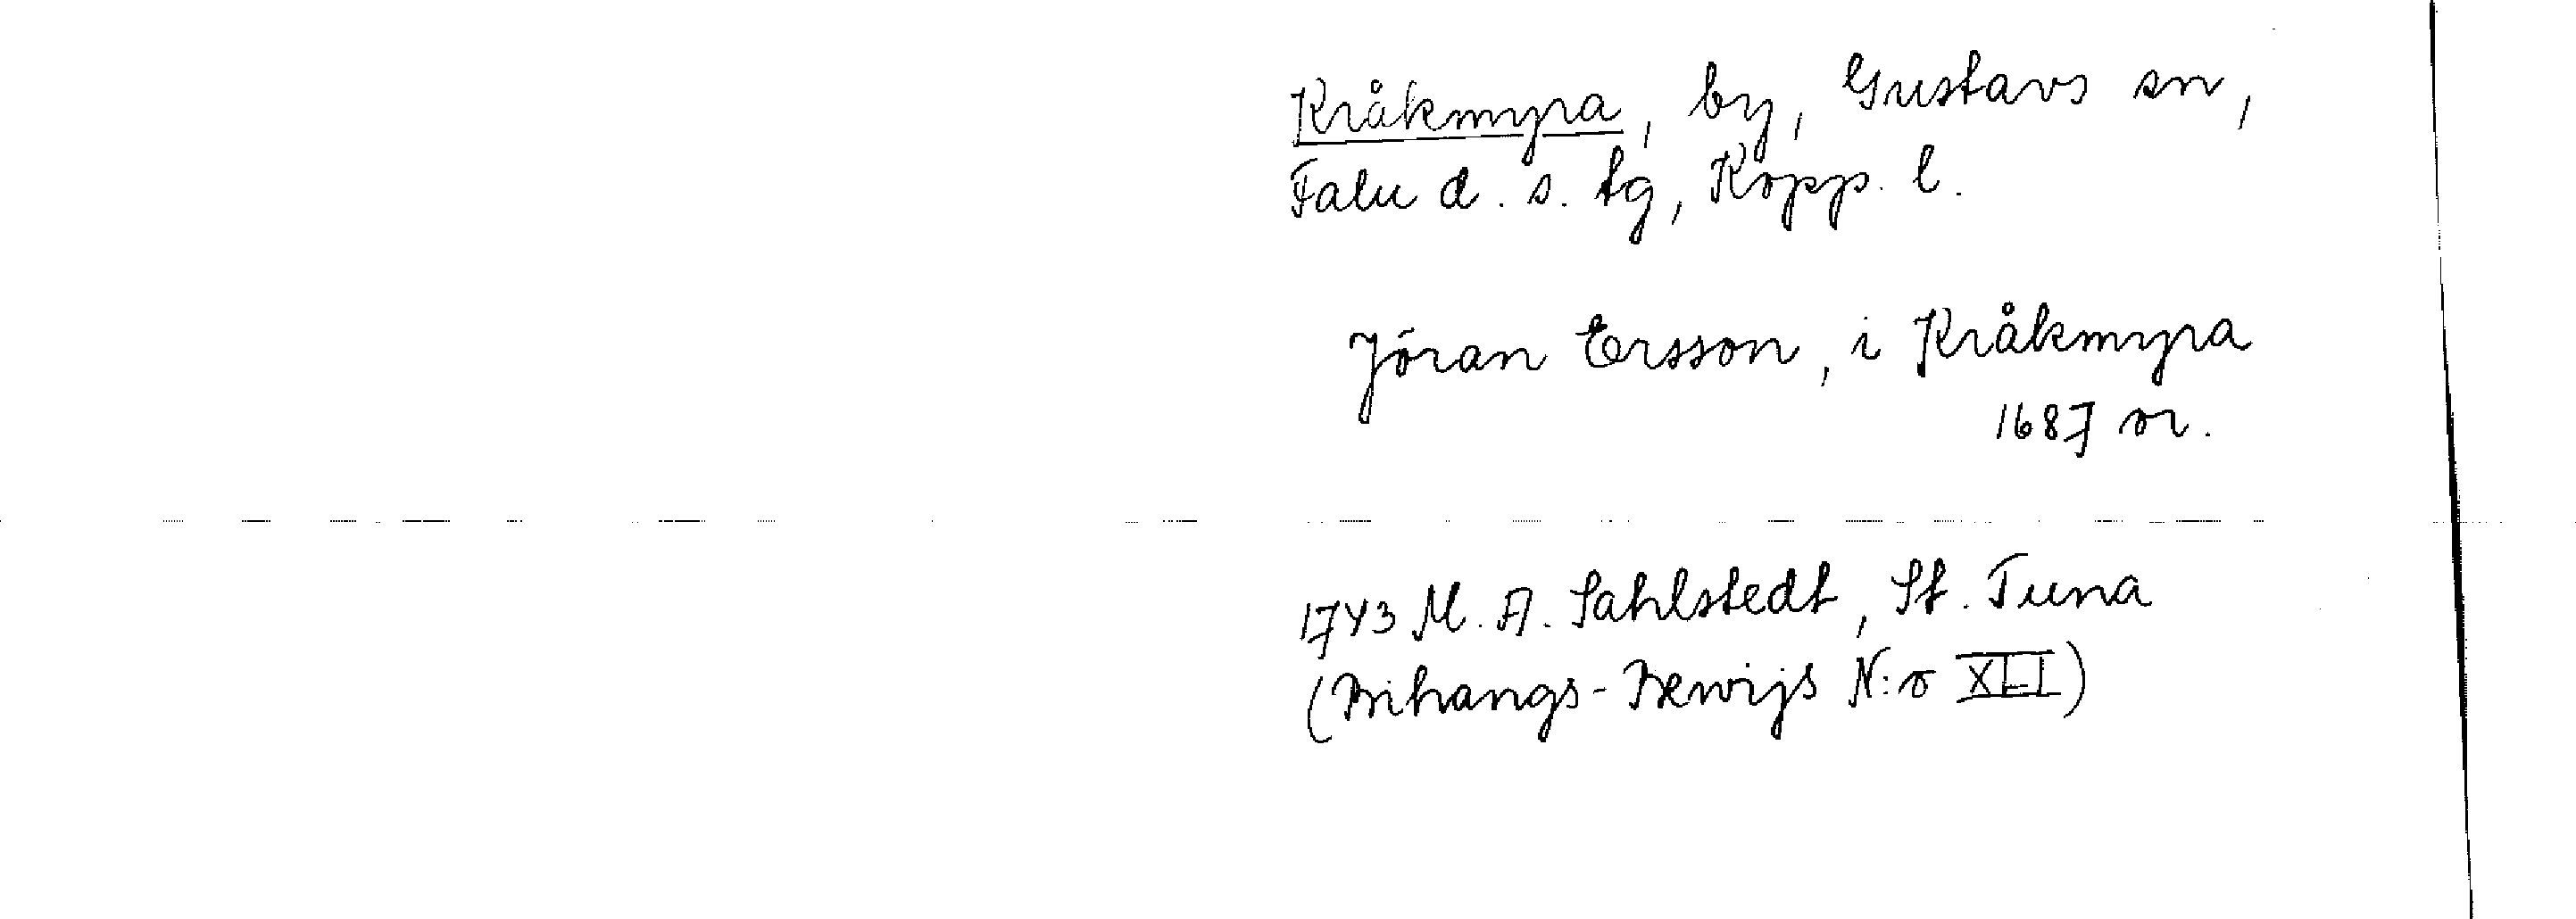 Kråkmyra, by, Gustavs sn,
Falu d. s. tg, Kopp. l.
Jöran Ersson, i Kråkmyra
1687 or.
1743 M. A. Sahlstedt, St. Tuna
(Bihangs-Bewijs N:o XLI)